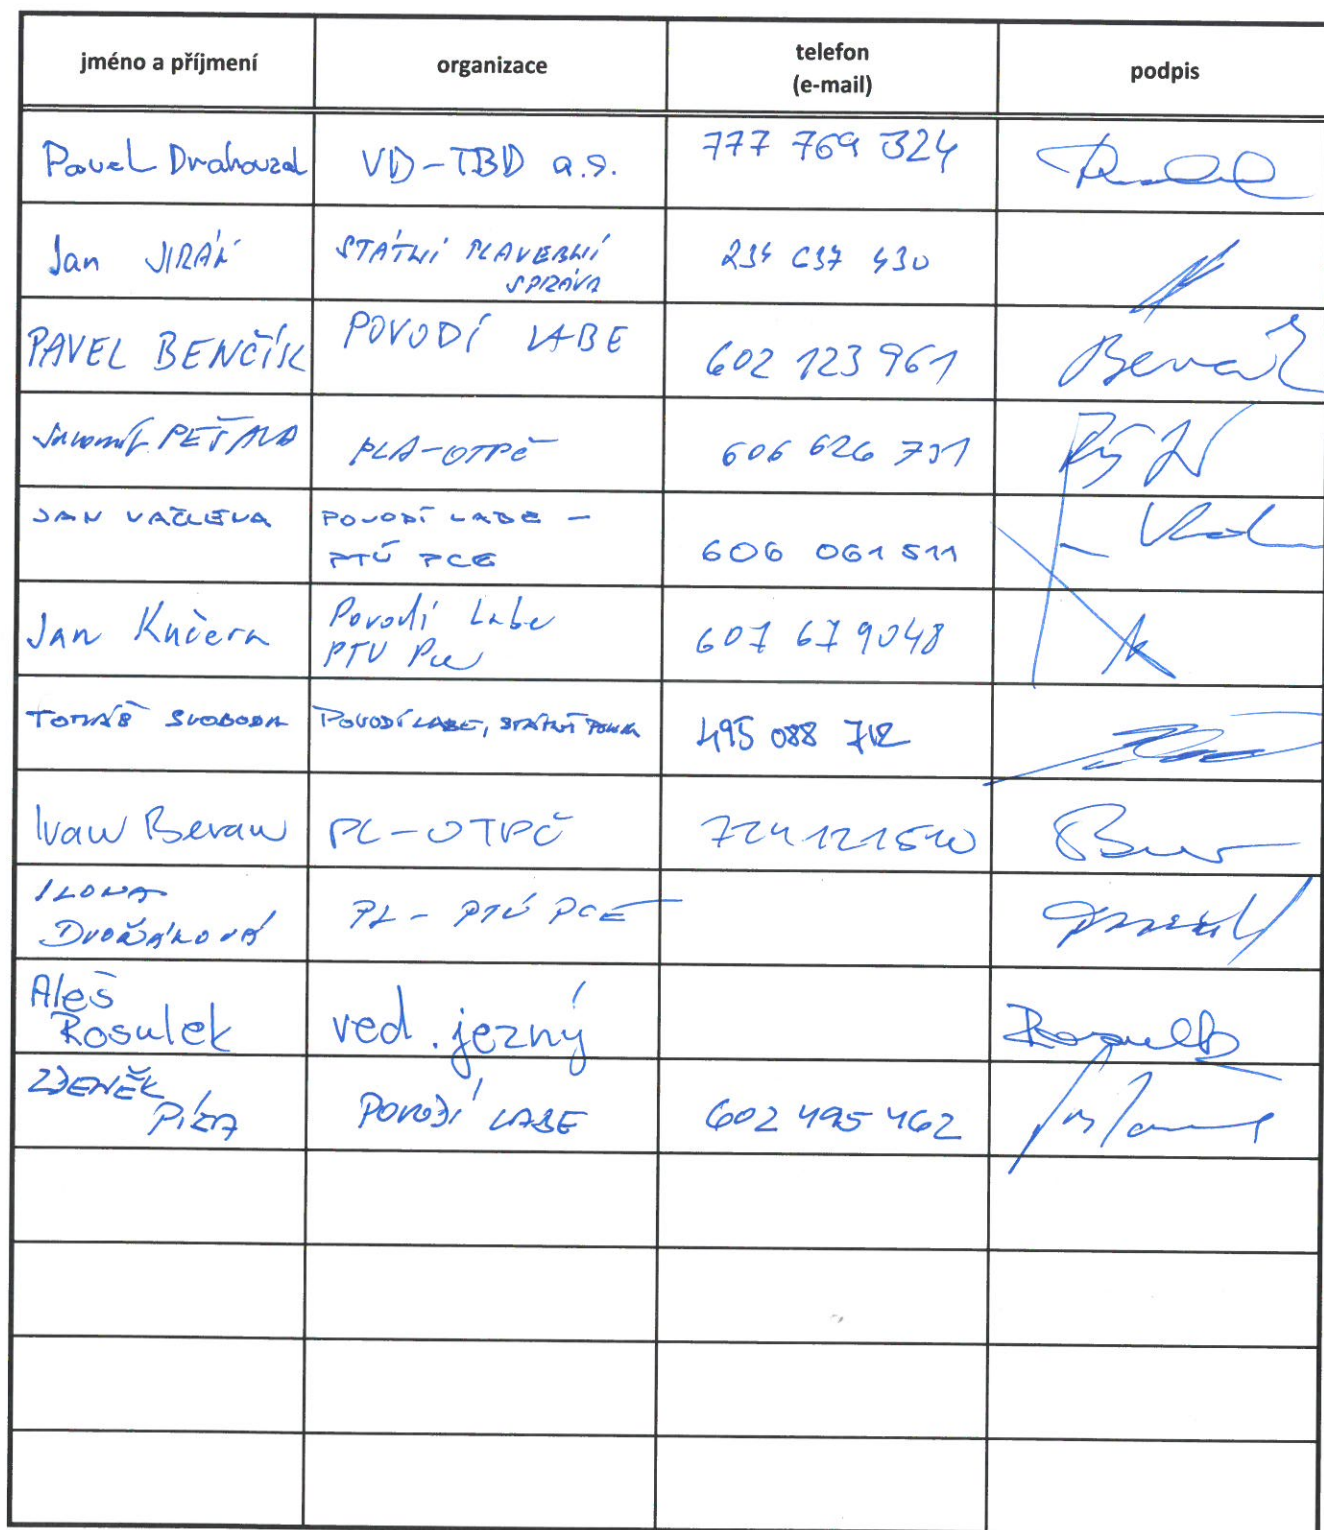 jméno a příjmení
organizace
telefon
(e-mail)
podpis
Pavel Drahouzal VD-TBD a.s. 777 769 324
Jan JIRÁK STÁTNÍ PLAVEBNÍ
SPRÁVA
234 637 430
PAVEL BENČÍK POVODÍ LABE 602 123 961
PLA-OTPČ 606 626
JAN POVODÍ LABE -
PTÚ PCE
606 061 511
Jan Kučera Povodí Labe
PTÚ
607 679048
TOMÁŠ SVOBODA POVODÍ LABE, STÁTNÍ PODNIK 495 088
Ivan Beran PL-OTPČ 724 121 510
ILONA
DVOŘÁKOVÁ
PL - PTÚ PCE
Aleš
Rosulek
ved. jezný
ZDENĚK
POVODÍ LABE 602 495 462